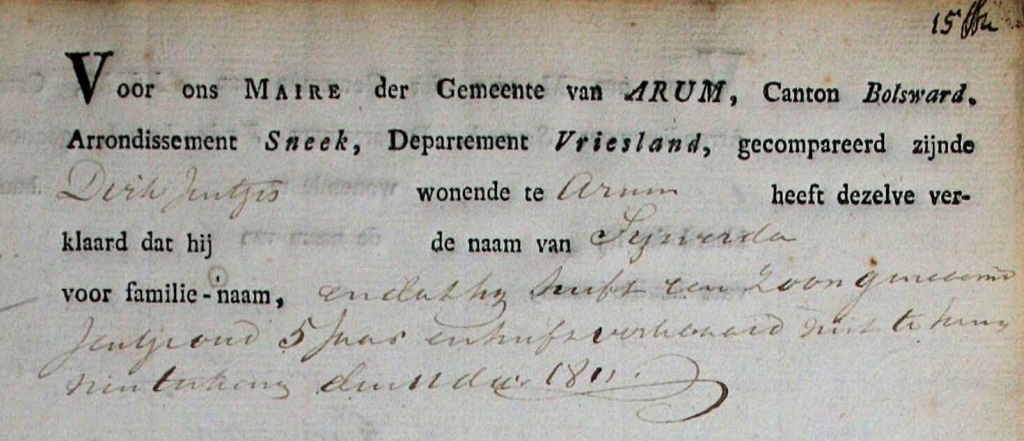 15
Voor ons MAIRE der Gemeente van ARUM, Canton Bolsward,
Arrondissement Sneek, Departement Vriesland, gecompareerd zijnde
Dirk Jentjes wonende te Arum heeft dezelve ver-
klaard dat hij de naam van
voor familie-naam, en dat hy heeft een Zoon genaamd
Jentje oud 5 Jaar en heeft verklaard niet te kunnen
den 11 dec. 1811.